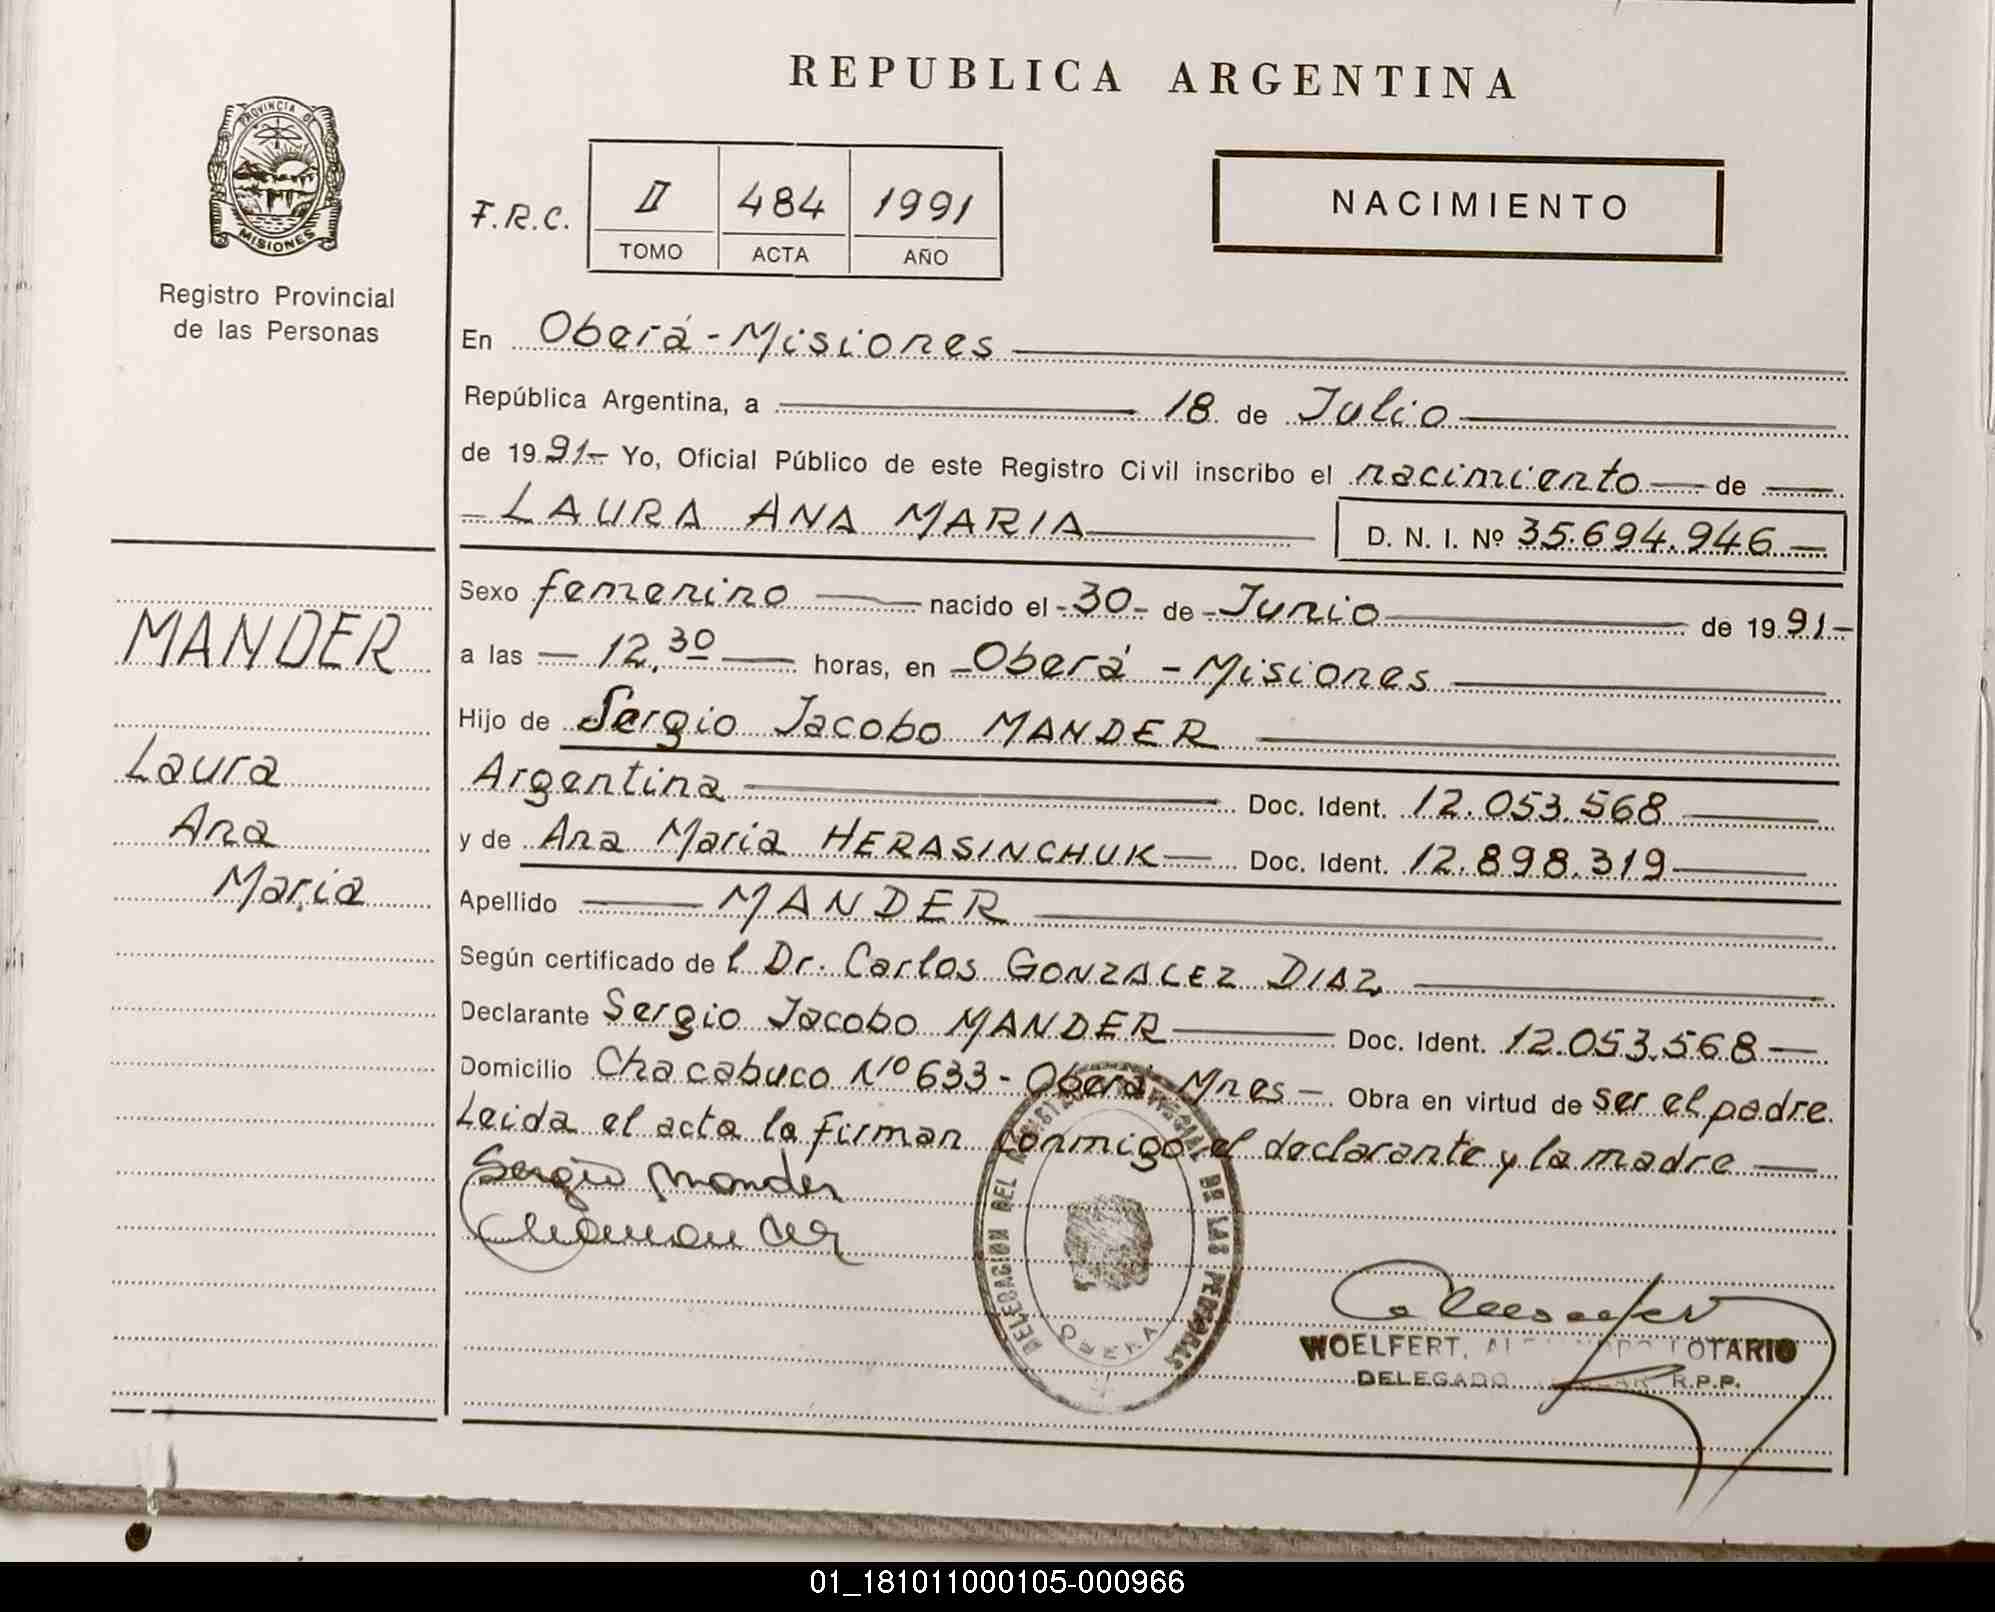 REPUBLICA ARGENTINA
PROVINCIA DE
MISIONES
Registro Provincial
de las Personas
F.R.C.
II 484 1991
TOMO ACTA AÑO
NACIMIENTO
En Oberá - Misiones
República Argentina, a 18 de Julio
de 1991- Yo, Oficial Público de este Registro Civil inscribo el nacimiento de
- LAURA ANA MARIA D. N. I. Nº 35.694.946
Sexo femenino nacido el -30- de - Junio de 1991-
a las 12,30 horas, en - Oberá - Misiones
Hijo de Sergio Jacobo MANDER
Argentina Doc. Ident. 12.053.568
y de Ana Maria HERASINCHUK Doc. Ident. 12.898.319
Apellido MANDER
Según certificado del Dr. Carlos GONZALEZ DIAZ
Declarante Sergio Jacobo MANDER Doc. Ident. 12.053.568
Domicilio Chacabuco Nº 633 - Oberá Mnes - Obra en virtud de ser el padre.
Leida el acta la firman conmigo el declarante y la madre
Sergio Mander
MANDER
Laura
Ana
Maria
DELEGACION DEL REGISTRO PROVINCIAL DE LAS PERSONAS
OBERA
WOELFERT, LOTARIO
DELEGADO R.P.P.
01_181011000105-000966